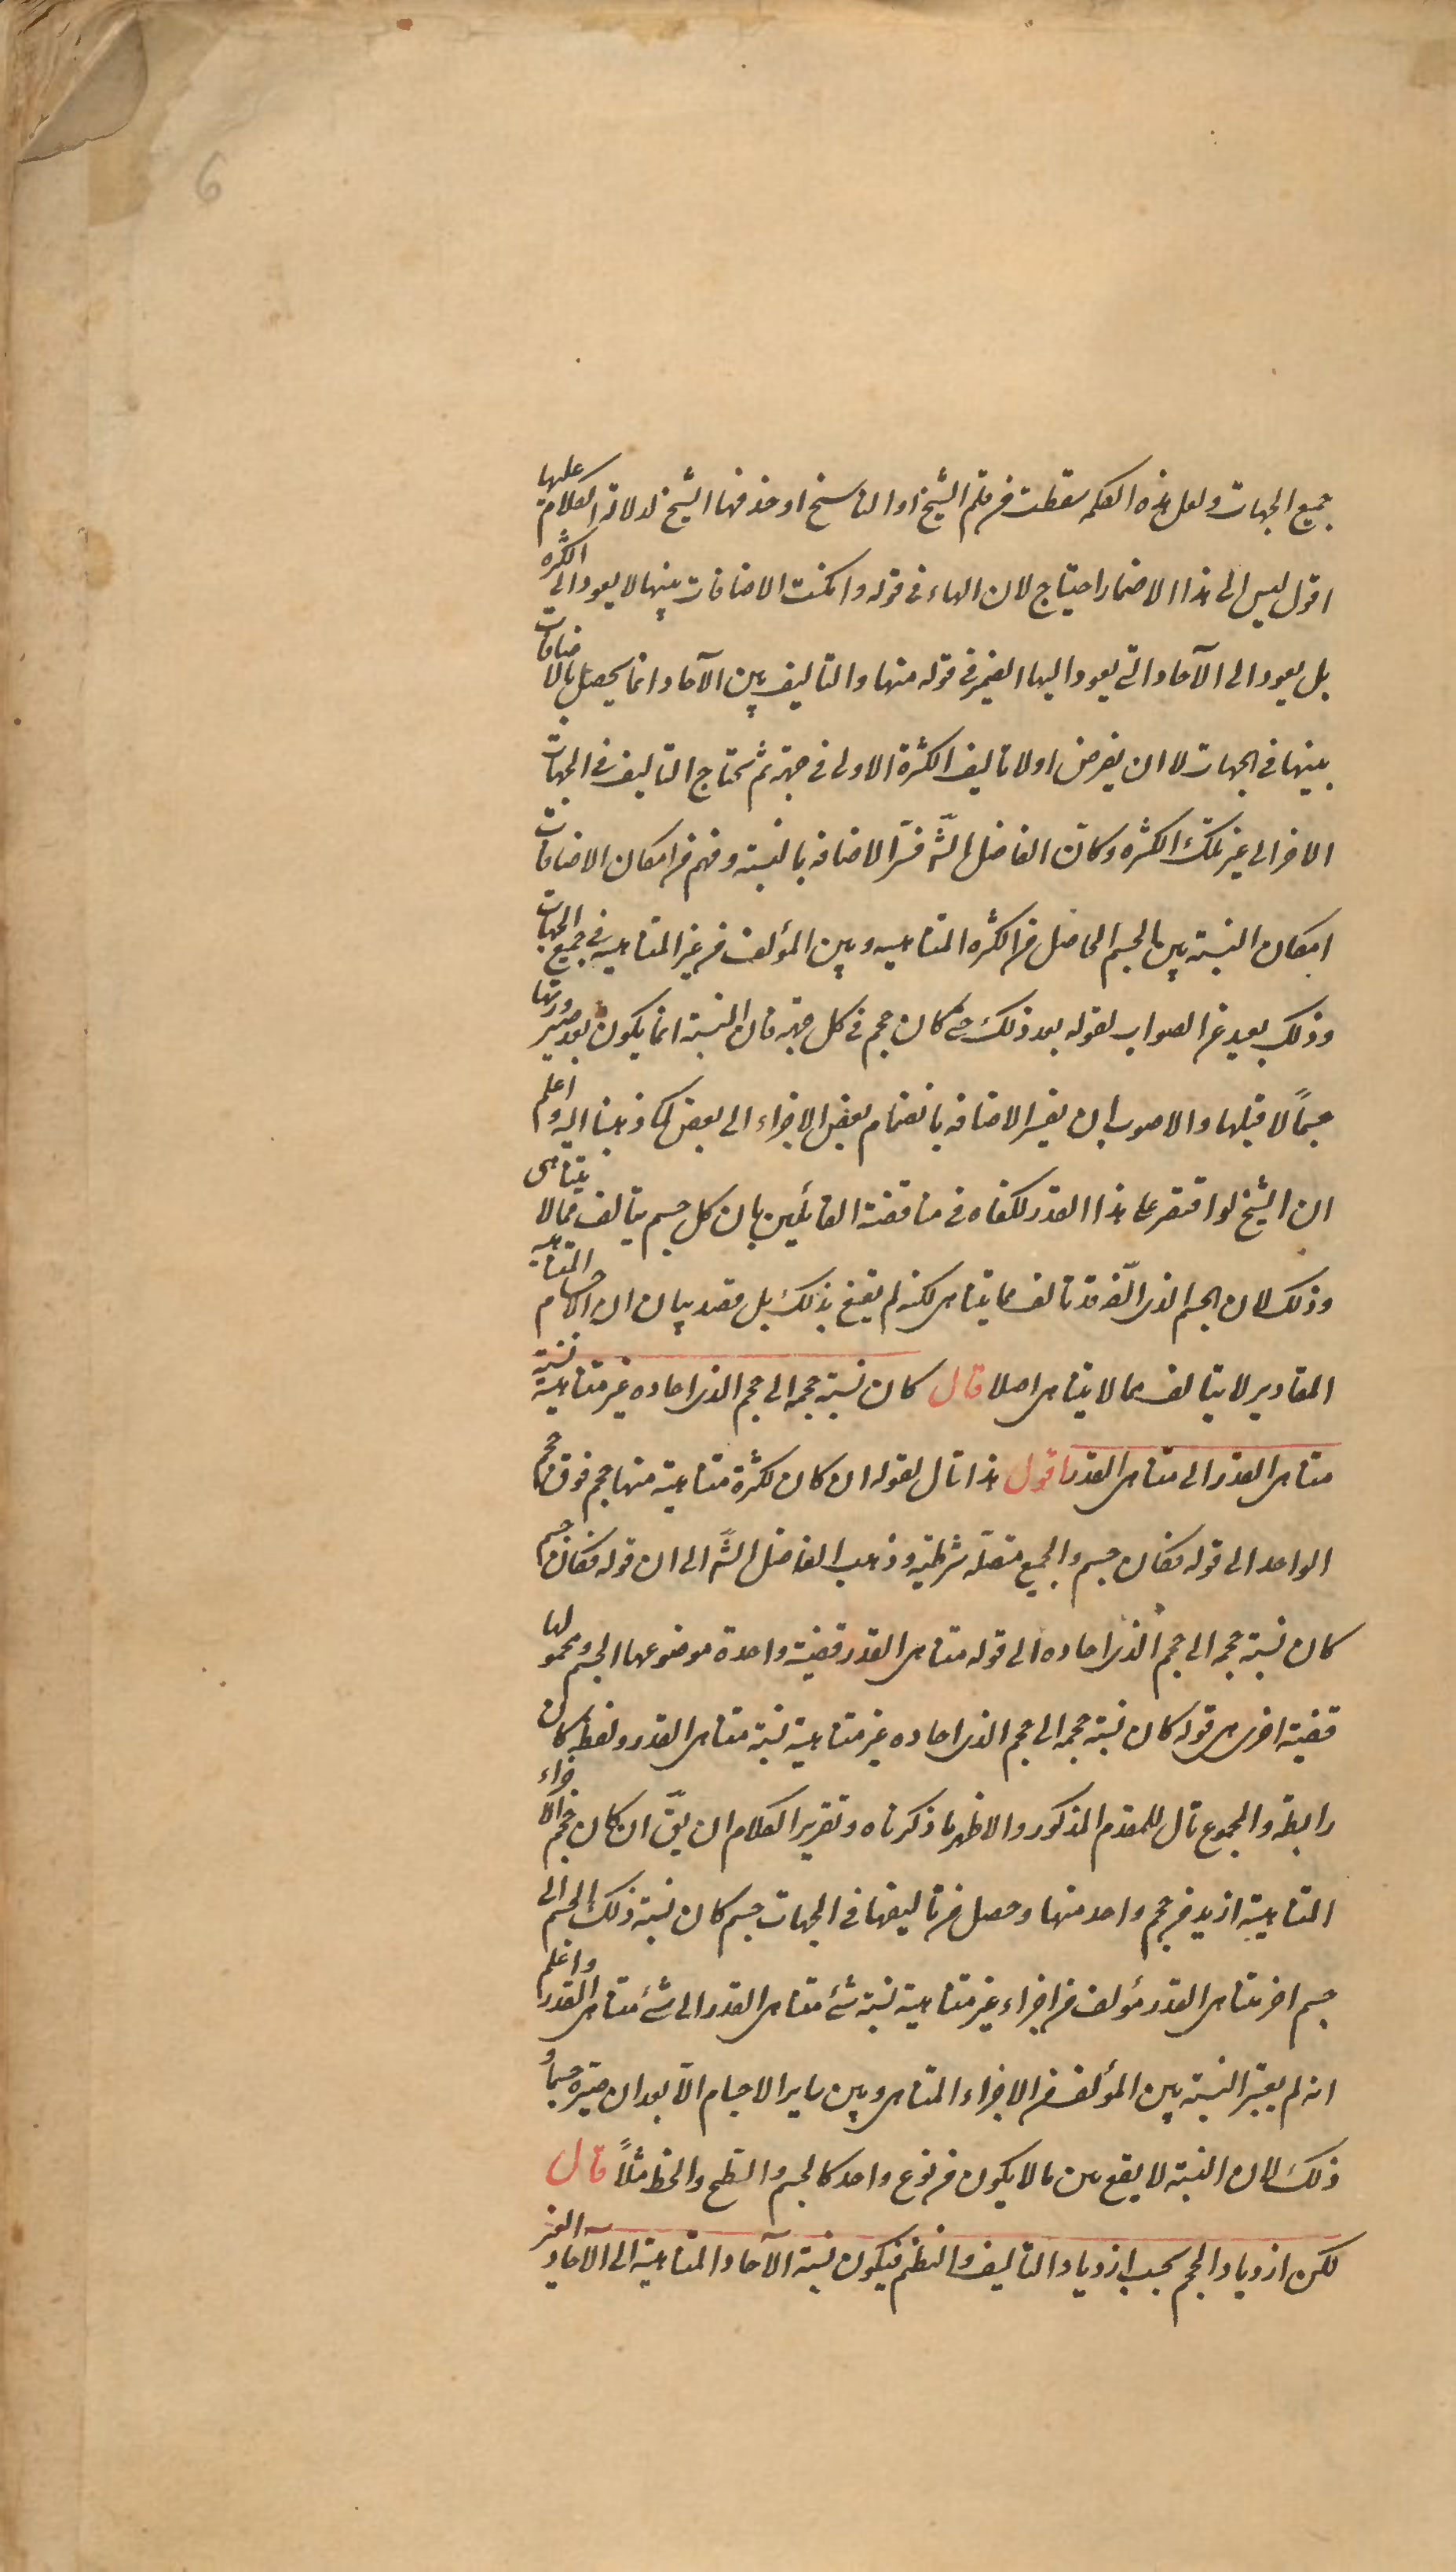 6
جميع الجهات ولعل هذه الكلمة سقطت من قلم الشيخ او الناسخ او حذفها الشيخ لدلالة الكلام عليها
اقول ليس الى هذا الاضمار احتياج لان الهاء فى قوله وامكنت الاضافات بينها لا يعود الى الكثرة
بل يعود الى الآحاد التى يعود اليها الضمير فى قوله منها والتاليف بين الآحاد انما يحصل بالاضافات
بينها فى الجهات لا ان يفرض اولا تاليف الكثرة الاولى فى جهة ثم يحتاج التاليف فى الجهات
الاخر الى غير تلك الكثرة وكان الفاضل الشّ فسّر الاضافة بالنسبة وفهم من امكان الاضافات
امكان النسبة بين الجسم الحاصل من الكثرة المتناهية وبين المؤلف من غير المتناهية فى جميع الجهات
وذلك بعيد عن الصواب لقوله بعد ذلك حتى كان حجم فى كل جهة فان النسبة انما يكون بعد صيرورتها
جسمًا لا قبلها والاصوب ان يفسر الاضافة بانضمام بعض الاجزاء الى بعض كما ذهبنا اليه واعلم
ان الشيخ لو اقتصر على هذا القدر لكفاه فى مناقضة القائلين بان كل جسم يتالف مما لا يتناهى
وذلك لان الجسم الذى الّفه قد تالف مما يتناهى لكنه لم يقنع بذلك بل قصد بيان ان الاجسام المتناهية
المقادير لا يتالف مما لا يتناهى اصلا قال كان نسبة حجمه الى حجم الذى احاده غير متناهية نسبة
متناهى القدر الى متناهى القدر اقول هذا تال لقوله ان كان لكثرة متناهية منها حجم فوق حجم
الواحد الى قوله فكان جسم والجميع متصلة شرطية وذهب الفاضل الشّ الى ان قوله فكان جسم
كان نسبة حجمه الى حجم الذى احاده الى قوله متناهى القدر قضية واحدة موضوعها الجسم ومحمولها
قضية اخرى هى قوله كان نسبة حجمه الى حجم الذى احاده غير متناهية نسبة متناهى القدر ولفظ كان
رابطة والمجموع تال للمقدم المذكور والاظهر ما ذكرناه وتقرير الكلام ان يقّ ان كان حجم الاجزاء
المتناهية ازيد من حجم واحد منها وحصل من تاليفها فى الجهات جسم كان نسبة ذلك الجسم الى
جسم اخر متناهى القدر مؤلف من اجزاء غير متناهية نسبة شئ متناهى القدر الى شئ متناهى القدر واعلم
انه لم يعتبر النسبة بين المؤلف من الاجزاء المتناهى وبين ساير الاجسام الّا بعد ان صيّره جسمًا و
ذلك لان النسبة لا يقع بين ما لا يكون من نوع واحد كالجسم والسطح والخط مثلًا قال
لكن ازدياد الحجم بحسب ازدياد التاليف والنظم فيكون نسبة الآحاد المتناهية الى الآحاد الغير